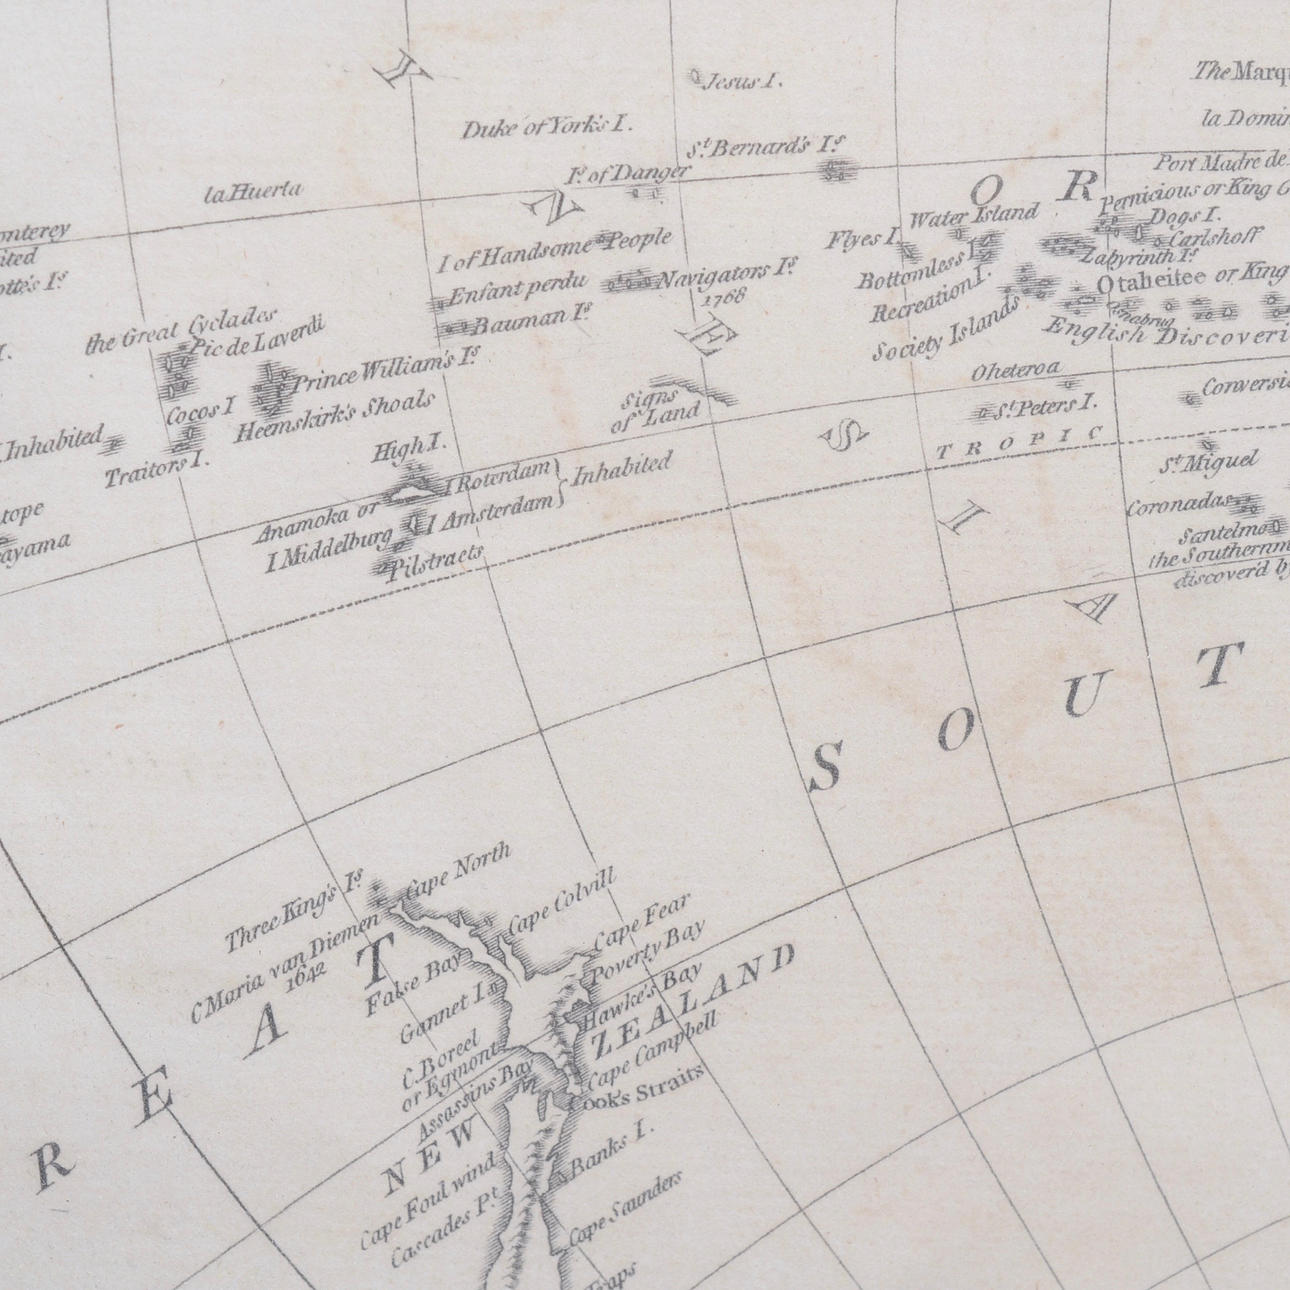 Jesus I.
The Marq
Duke of York's I.
la Domin
St. Bernard's Is.
Port Madre de
Is. of Danger
la Huerta
O R
Pernicious or King G
Water Island
Dogs I.
onterey
Flyes I.
Carlshoff
I of Handsome People
Labyrinth Is.
ited
Bottomless I.
Otaheitee or King
otte's Is.
Enfant perdu
Navigators Is.
1768
Recreation I.
Bauman Is.
Society Islands
Osnabrug
English Discoveri
the Great Cyclades
Pic de Laverdi
Prince William's Is.
Oheteroa
I.
Signs
of Land
Conversi
Cocos I
Heemskirk's Shoals
St. Peters I.
I. Inhabited
TROPIC
High I.
St. Miguel
Traitors I.
I Roterdam
Inhabited
Anamoka or
I Amsterdam
Coronadas
tope
I Middelburg
Santelmo
ayama
Pilstracts
the Southernm
discover'd by
Y
N
E
S
I
A
SOUT
Three King's Is.
Cape North
C Maria van Diemen
1642
Cape Colvill
Cape Fear
REAT
False Bay
Poverty Bay
Gannet I.
Hawke's Bay
ZEALAND
C. Boreel
or Egmont
Cape Campbell
Assassins Bay
Cook's Straits
NEW
Banks I.
Cape Foul wind
Cascades Pt.
Cape Saunders
Traps